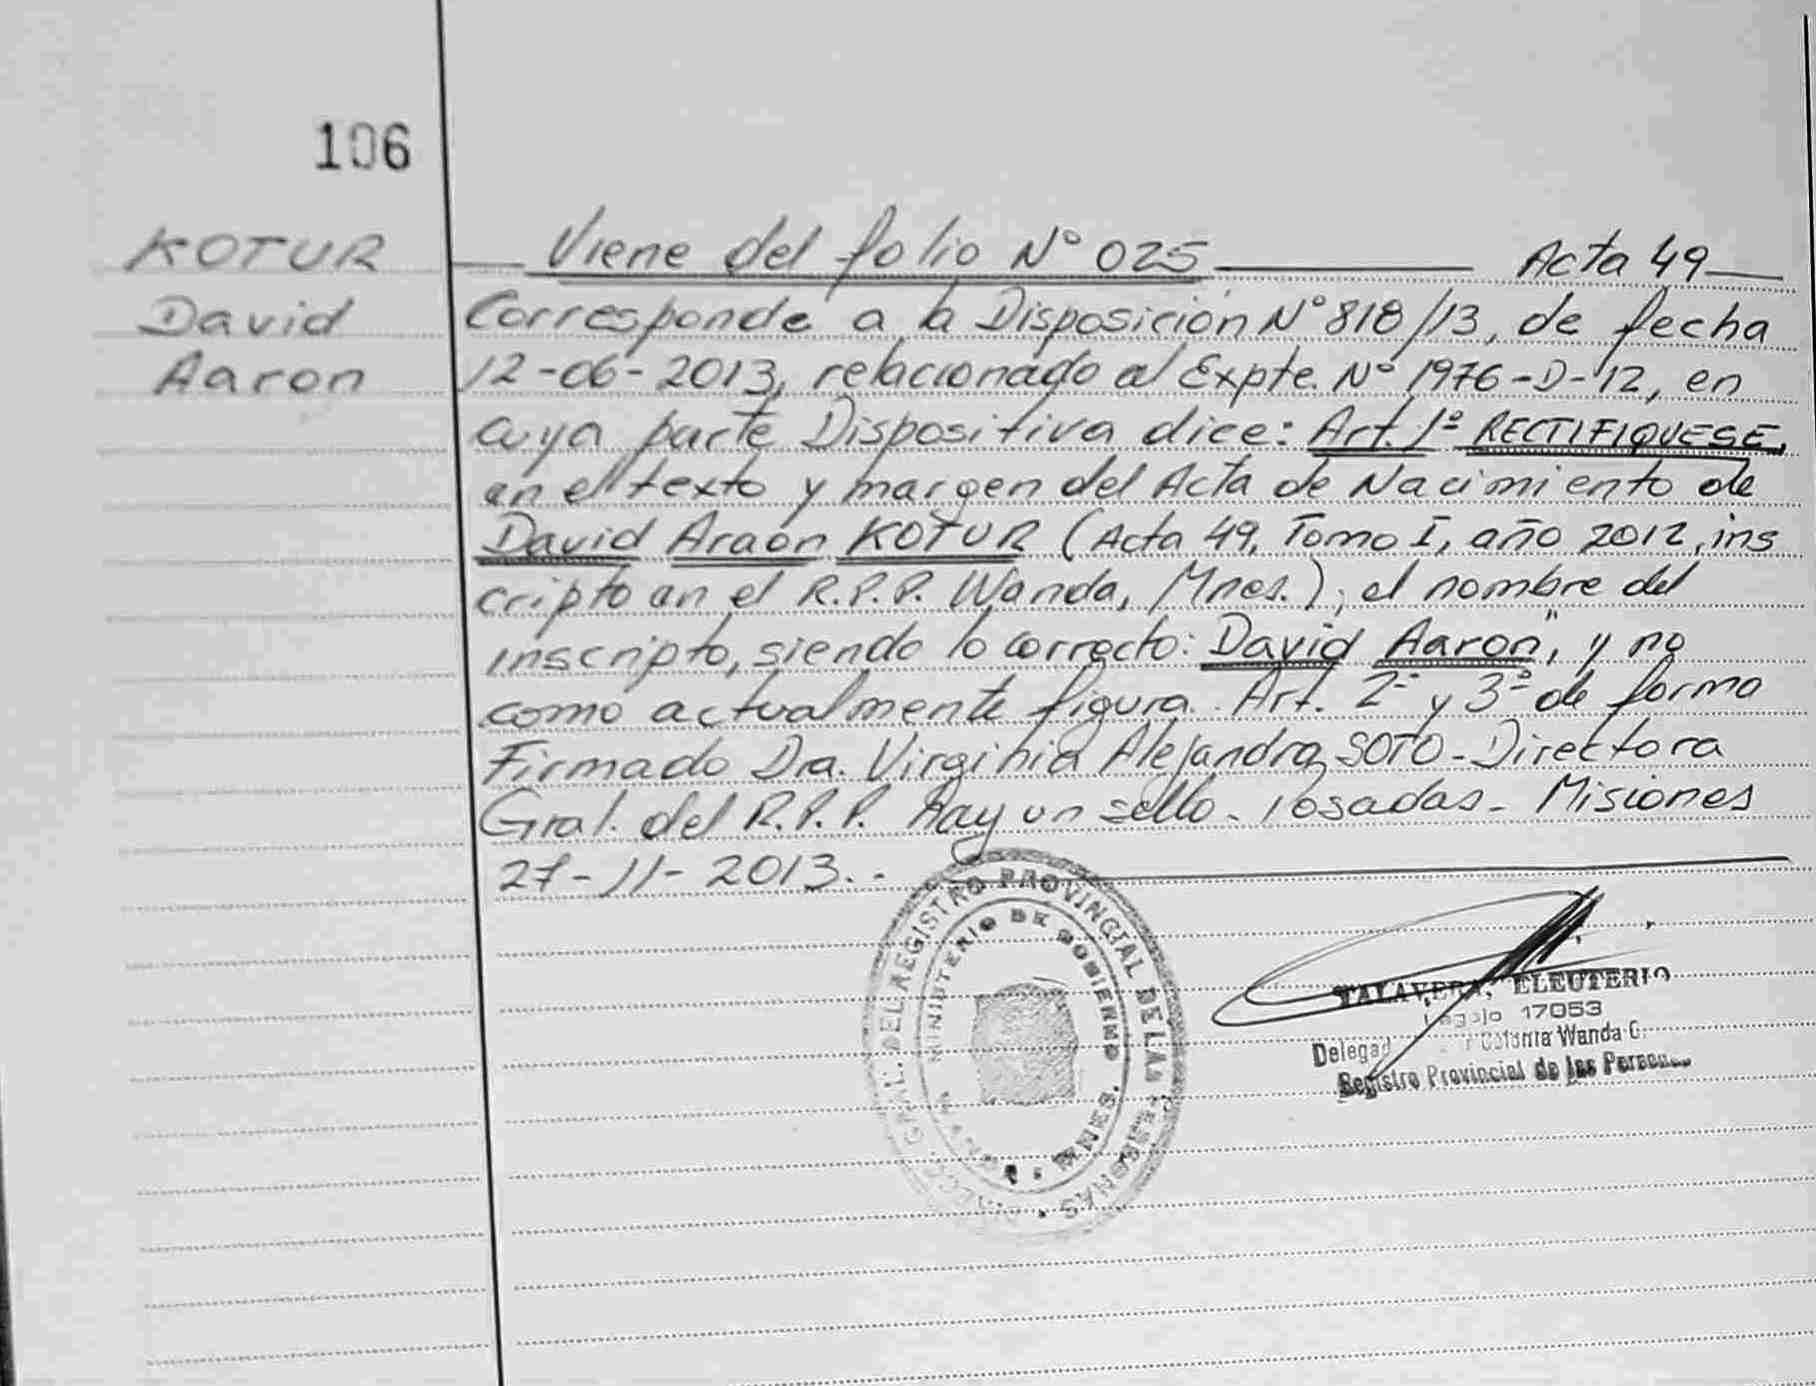 106
KOTUR
David
Aaron
Viene del folio N° 025 Acta 49
Corresponde a la Disposición N° 818/13, de fecha
12-06-2013, relacionado al Expte. N° 1976-D-12, en
cuya parte Dispositiva dice: Art. 1° RECTIFIQUESE,
en el texto y margen del Acta de Nacimiento de
David Araon KOTUR (Acta 49, Tomo I, año 2012, ins
cripto en el R.P.P. Wanda, Mnes.), el nombre del
inscripto, siendo lo correcto: David Aaron", y no
como actualmente figura. Art. 2° y 3° de forma
Firmado Dra. Virginia Alejandra SOTO - Directora
Gral. del R.P.P. Hay un sello - Posadas - Misiones
27-11-2013.-
GRAL. DEL REGISTRO PROVINCIAL DE LAS PERSONAS
MINISTERIO DE GOBIERNO MNES.
TALAVERA, ELEUTERIO
Legajo 17053
Colonia Wanda C.
Registro Provincial de las